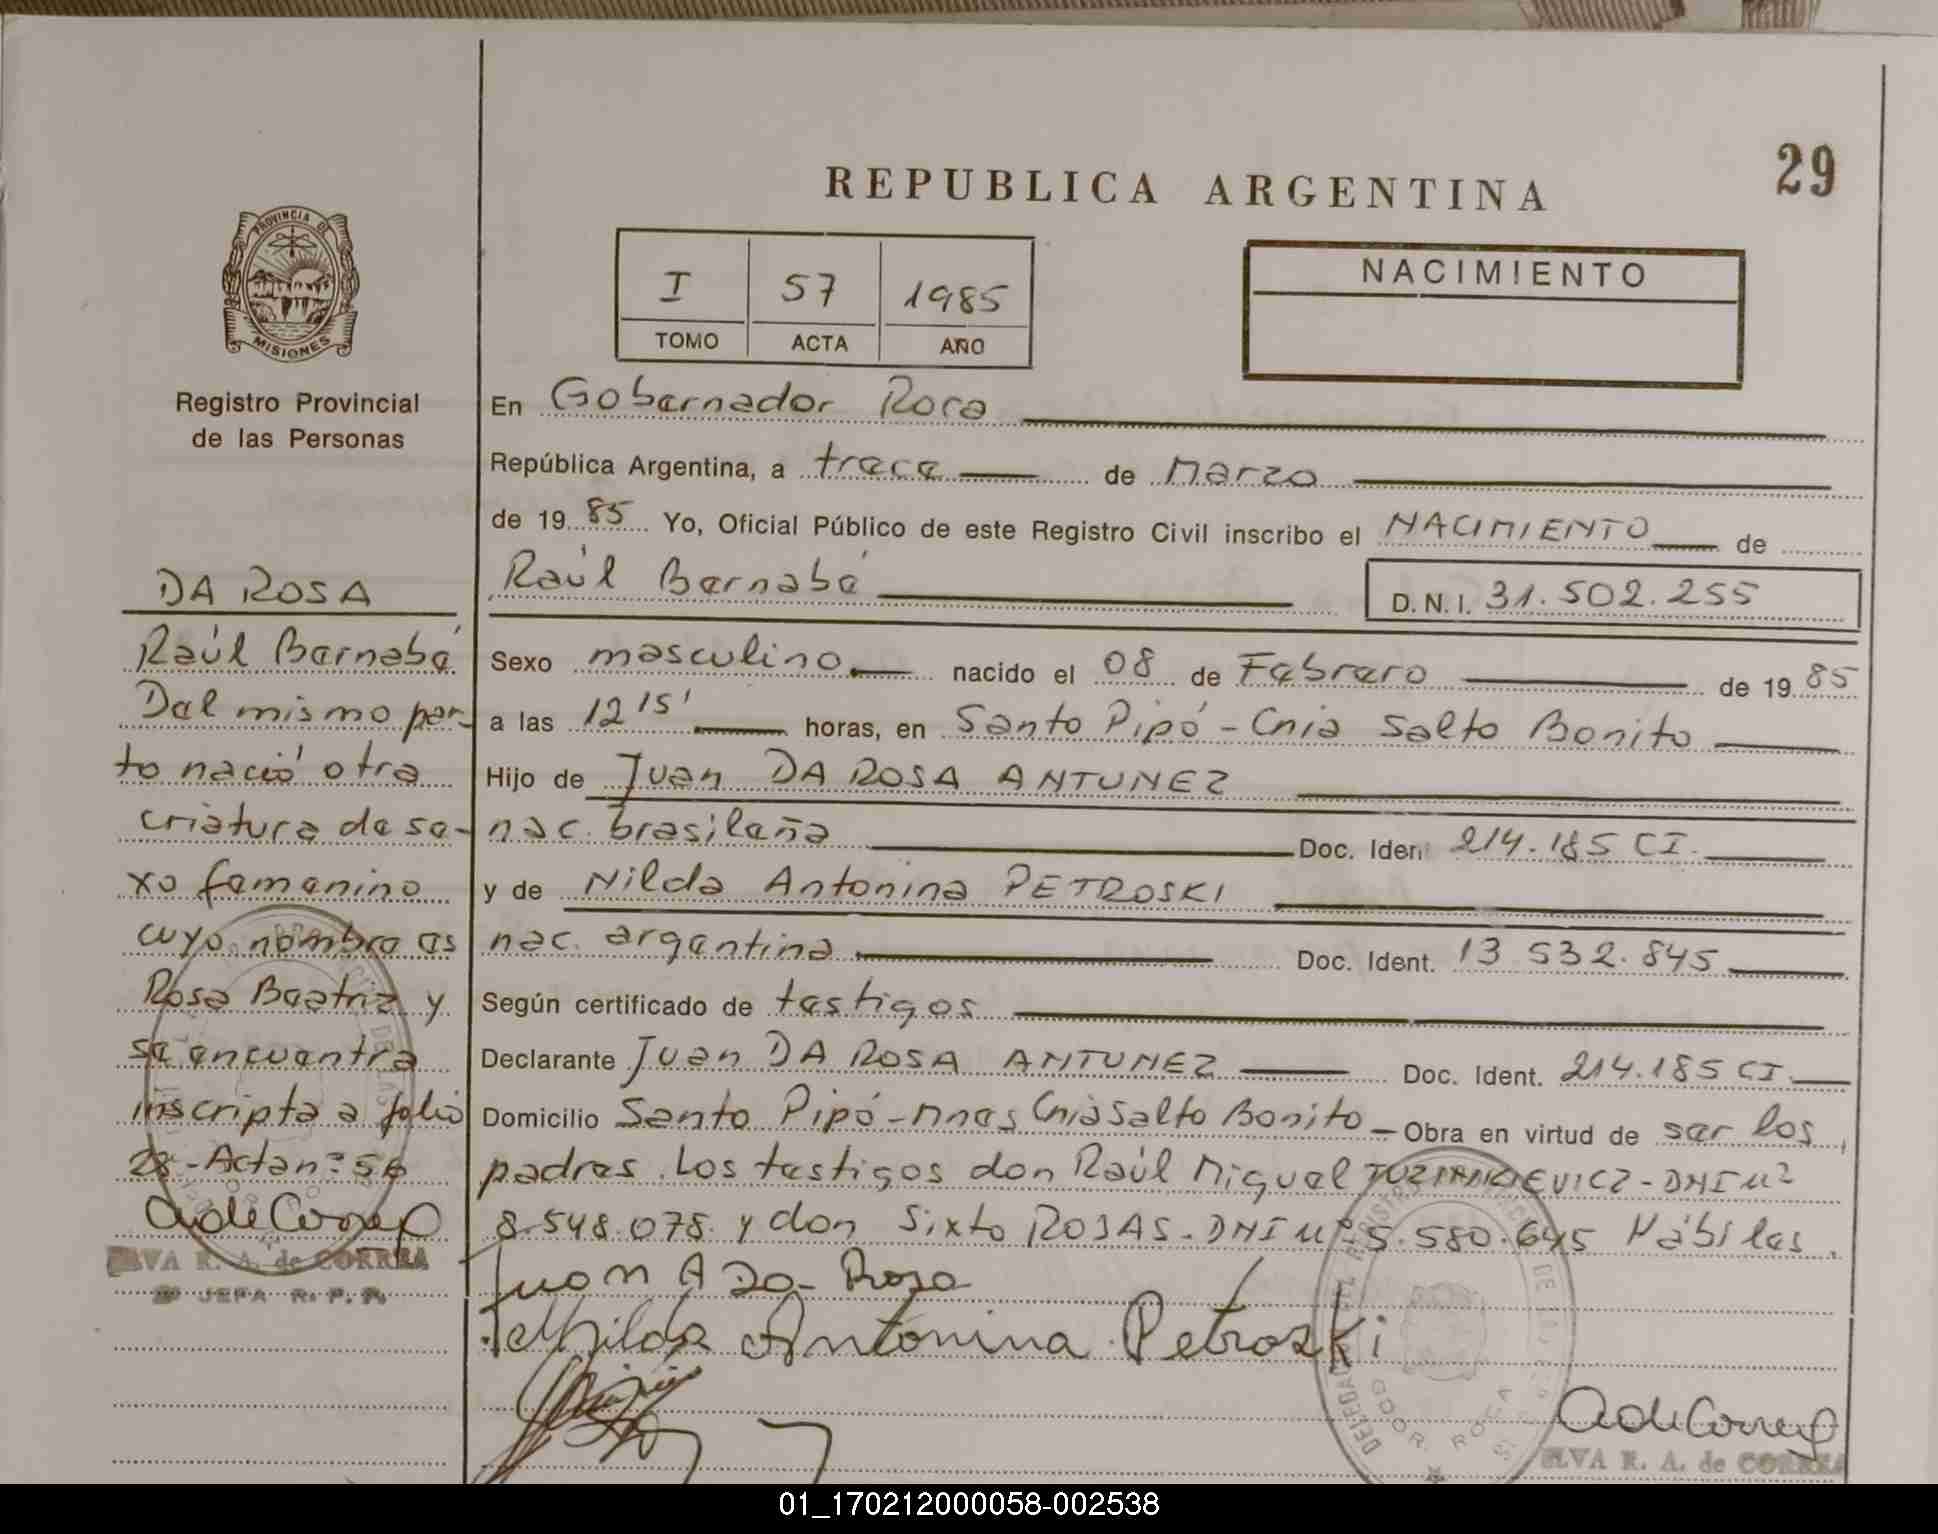 29
REPUBLICA ARGENTINA
PROVINCIA DE
MISIONES
Registro Provincial
de las Personas
I 57 1985
TOMO ACTA AÑO
NACIMIENTO
En Gobernador Roca
República Argentina, a trece de Marzo
de 1985 Yo, Oficial Público de este Registro Civil inscribo el NACIMIENTO de
Raúl Bernabé
D.N.I. 31.502.255
Sexo masculino nacido el 08 de Febrero de 1985
a las 12 15' horas, en Santo Pipó - Cnia Salto Bonito
Hijo de Juan DA ROSA ANTUNEZ
nac. brasileña Doc. Iden 214.185 CI.
y de Nilda Antonina PETROSKI
nac. argentina Doc. Ident. 13 532.845
Según certificado de testigos
Declarante Juan DA ROSA ANTUNEZ Doc. Ident. 214.185 CI.
Domicilio Santo Pipó - Mnes Cnia Salto Bonito - Obra en virtud de ser los
padres. Los testigos don Raúl Miguel - DNI Nº
8.548.078 y don Sixto ROJAS - DNI Nº 5.580.645 Hábiles.
Juan A Da Rosa
Nilda Antonina Petroski
GDOR. ROCA
ELVA R. A. de CORREA
DA ROSA
Raúl Bernabé
Del mismo par-
to nació otra
criatura de se-
xo femenino
cuyo nombre es
Rosa Beatriz y
se encuentra
inscripta a folio
28 - Acta nº 56
ELVA R. A. de CORREA
JEFA R. P. P.
01_170212000058-002538